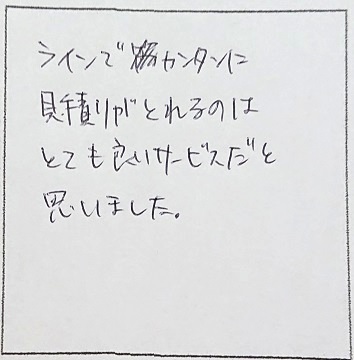 ラインでカンタンに
見積りがとれるのは
とても良いサービスだと
思いました。